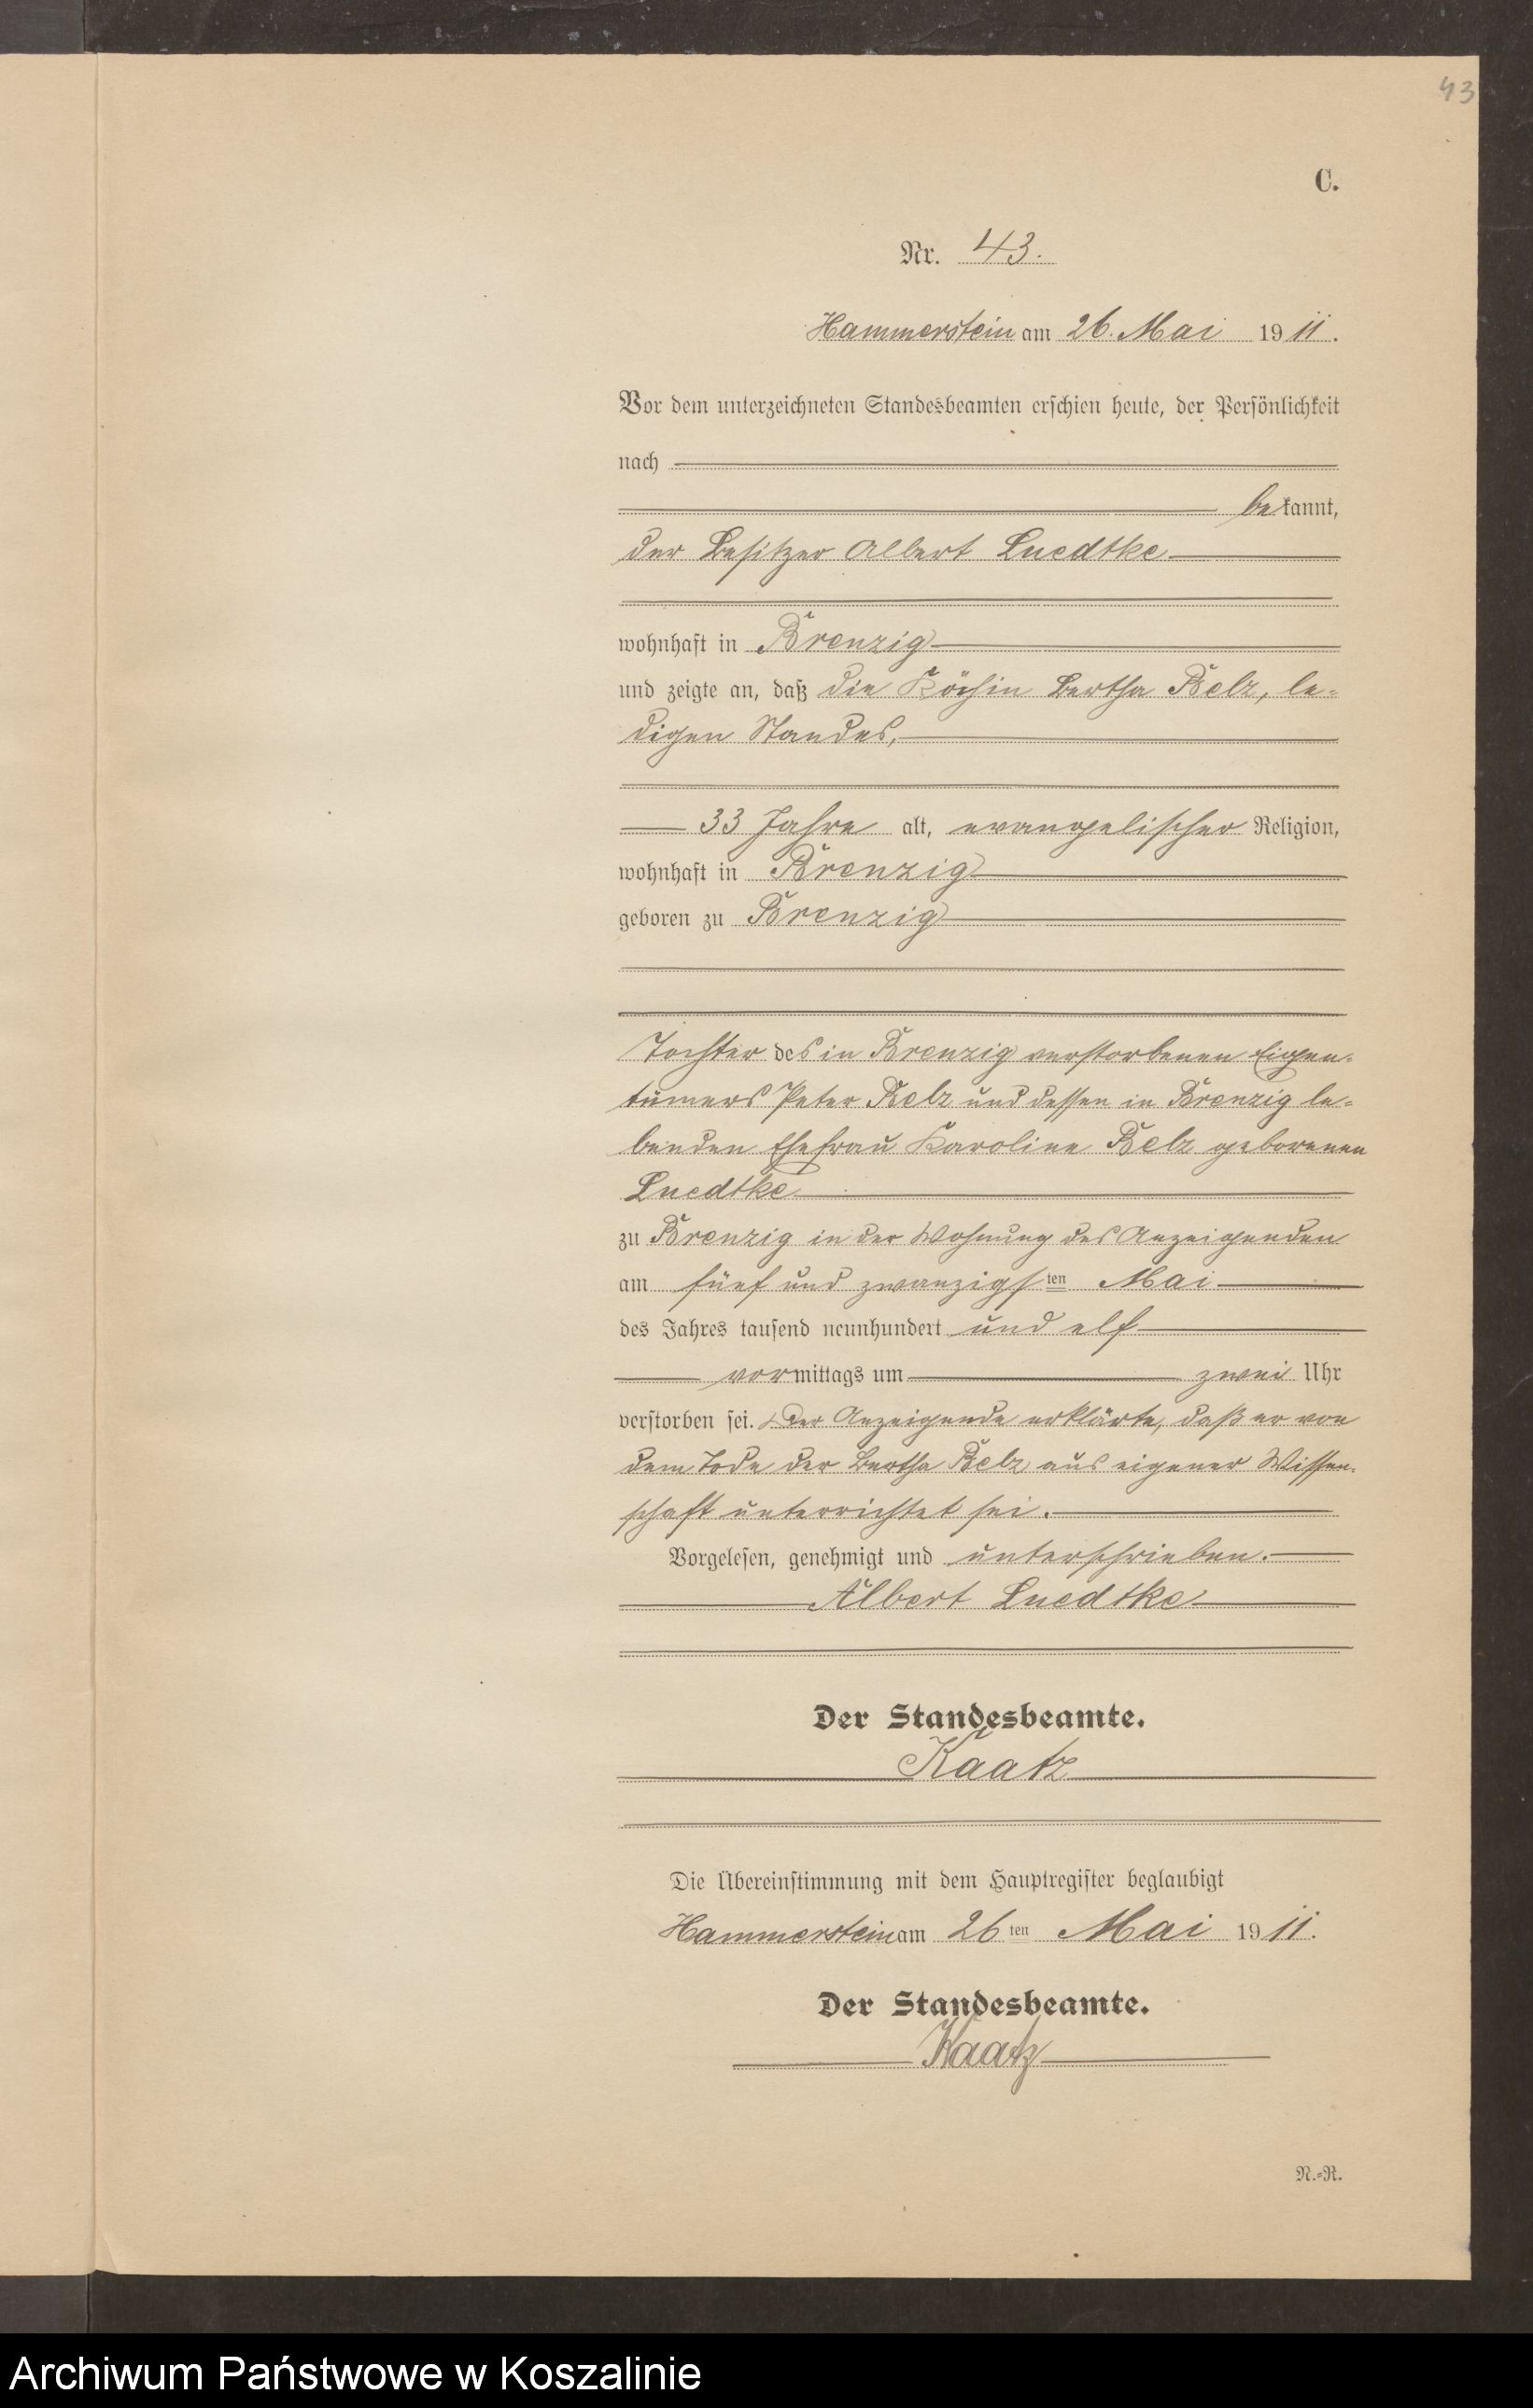 43
C.
Nr. 43.
Hammerstein am 26. Mai 1911.
Vor dem unterzeichneten Standesbeamten erschien heute, der Persönlichkeit
nach
bekannt,
der Besitzer Albert Luedtke
wohnhaft in Brenzig
und zeigte an, daß die Köchin Bertha Belz, le-
digen Standes,
33 Jahre alt, evangelischer Religion,
wohnhaft in Brenzig
geboren zu Brenzig
Tochter des in Brenzig verstorbenen Eigen-
tümers Peter Belz und dessen in Brenzig le-
benden Ehefrau Karoline Belz geborenen
Luedtke
zu Brenzig in der Wohnung des Anzeigenden
am fünf und zwanzigsten Mai
des Jahres tausend neunhundert und elf
vormittags um zwei Uhr
verstorben sei. Der Anzeigende erklärte, daß er von
dem Tode der Bertha Belz aus eigener Wissen-
schaft unterrichtet sei.
Vorgelesen, genehmigt und unterschrieben.
Albert Luedtke
Der Standesbeamte.
Kaatz
Die Übereinstimmung mit dem Hauptregister beglaubigt
Hammerstein am 26ten Mai 1911.
Der Standesbeamte.
Kaatz
N.-R.
Archiwum Państwowe w Koszalinie